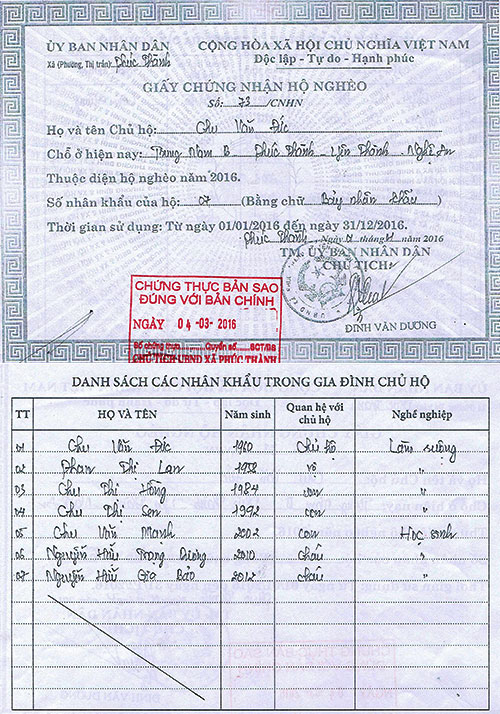 ỦY BAN NHÂN DÂN
Xã (Phường, Thị trấn): Phúc Thành
CỘNG HÒA XÃ HỘI CHỦ NGHĨA VIỆT NAM
Độc lập - Tự do - Hạnh phúc
GIẤY CHỨNG NHẬN HỘ NGHÈO
Số: 73 /CNHN
Họ và tên Chủ hộ: Chu Văn Đức
Chỗ ở hiện nay: Trung Nam B Phúc Thành - Yên Thành - Nghệ An
Thuộc diện hộ nghèo năm 2016.
Số nhân khẩu của hộ: 07 (Bằng chữ Bảy nhân khẩu)
Thời gian sử dụng: Từ ngày 01/01/2016 đến ngày 31/12.2016.
Phúc Thành, Ngày tháng năm 2016
TM. ỦY BAN NHÂN DÂN
CHỦ TỊCH
ĐINH VĂN DƯƠNG
CHỨNG THỰC BẢN SAO
ĐÚNG VỚI BẢN CHÍNH
NGÀY 04 -03- 2016
Số chứng thực Quyển số SCT/BS
CHỦ TỊCH UBND XÃ PHÚC THÀNH
DANH SÁCH CÁC NHÂN KHẨU TRONG GIA ĐÌNH CHỦ HỘ
TT HỌ VÀ TÊN Năm sinh Quan hệ với chủ hộ Nghề nghiệp
01 Chu Văn Đức 1960 Chủ hộ Làm ruộng
02 Phan Thị Lan 1958 vợ "
03 Chu Thị Hồng 1984 con "
04 Chu Thị Sen 1992 con "
05 Chu Văn Mạnh 2002 con Học sinh
06 Nguyễn Hữu Trọng Dương 2010 cháu "
07 Nguyễn Hữu Gia Bảo 2012 cháu "